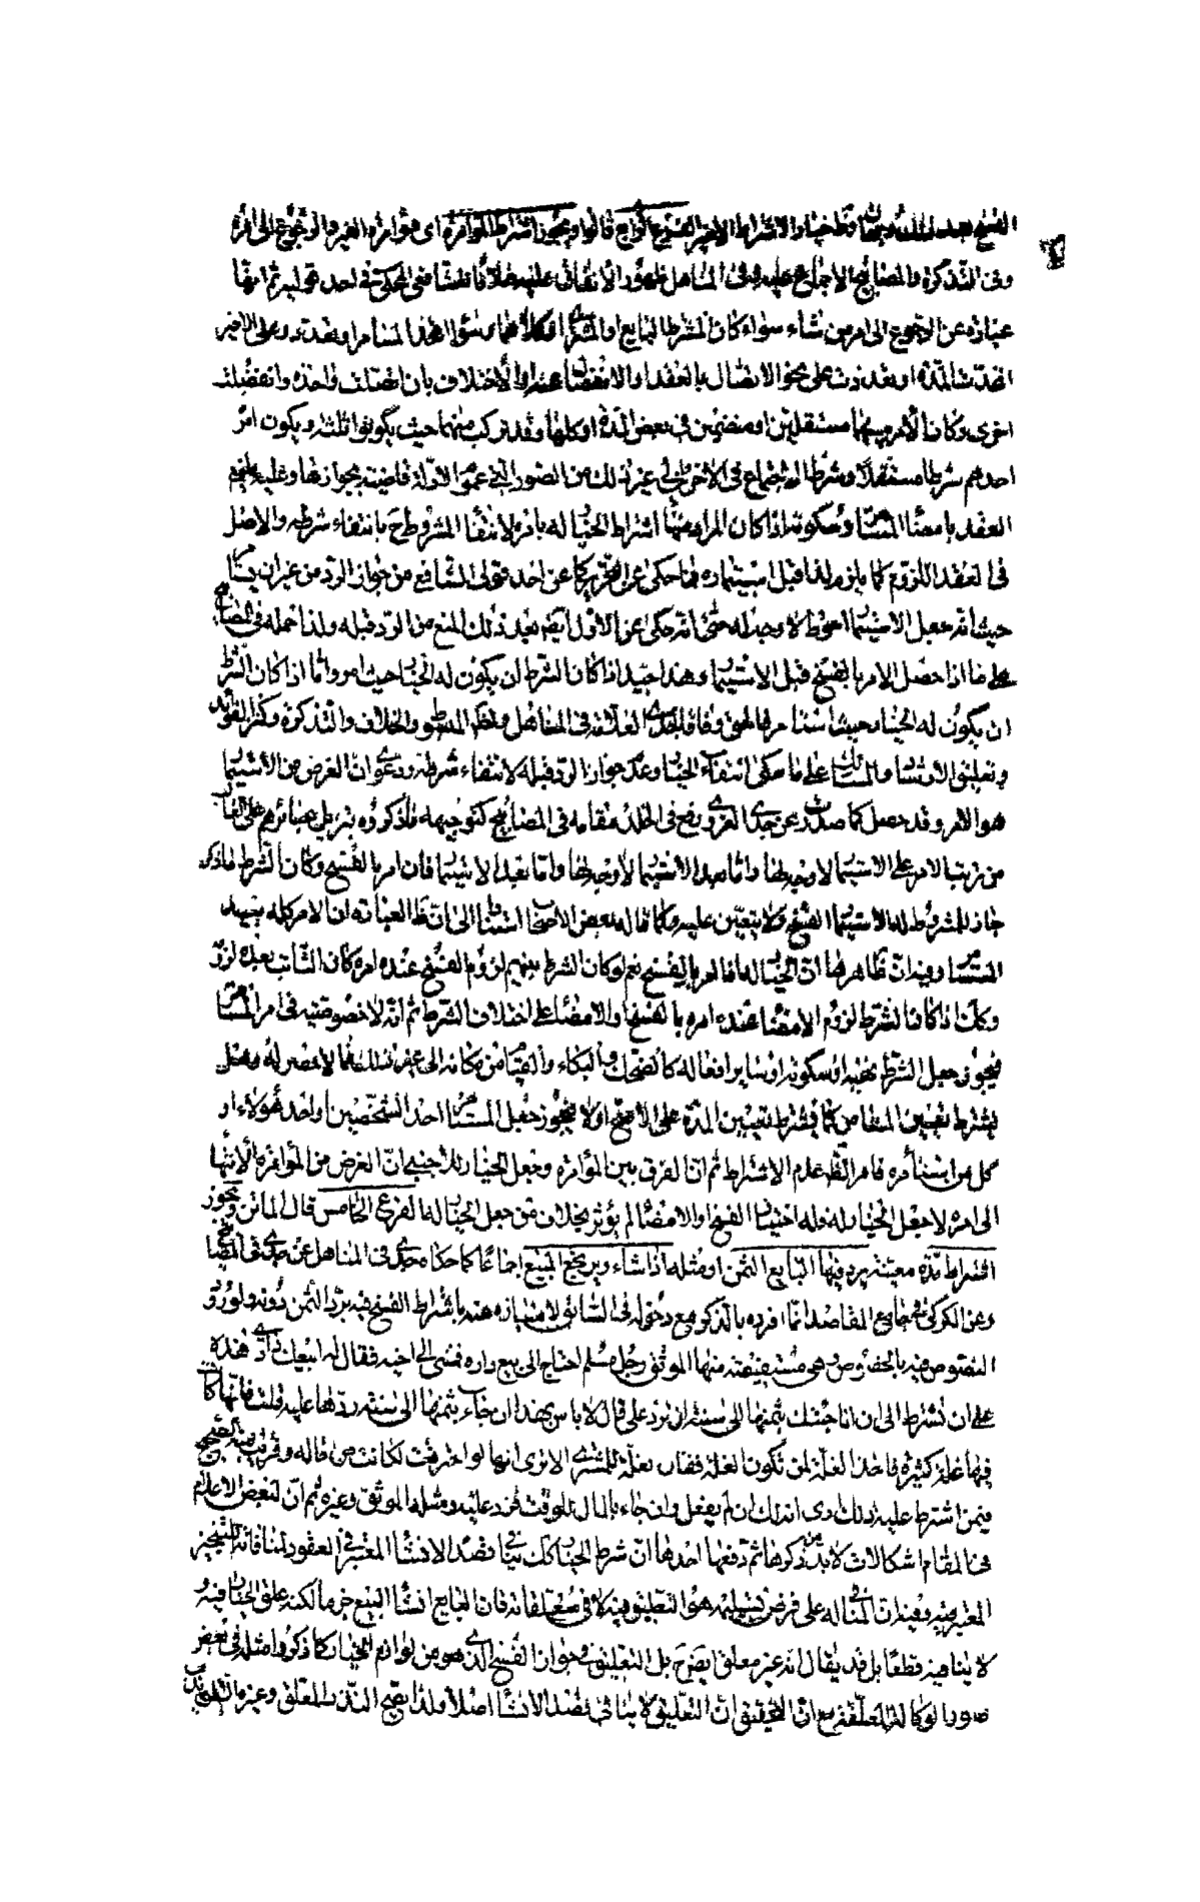 الفسخ بعد المدة خيار الاشتراط الفرع الرابع قالوا ويجوز اشتراط المؤامرة اى مؤامرة الغير والرجوع الى امره
وفى التذكرة والمصابيح الاجماع عليه وفى المناهل ظهور الاتفاق عليه خلافا للشافعى المحكى فى احد قوليه ثم انها
عبارة عن الرجوع الى امر من شاء سواء كان المشترط البايع او المشترى او كلاهما وسواء اتحد المستامر او تعدد وعلى الاخير
اتحدت المدة او تعددت على نحو الاتصال بالعقد او الانفصال عنه او الاختلاف بان اتصلت واحدة وانفصلت
اخرى وكان الامر بينهما مستقلين او منضمين فى بعض المدة او كلها وقد تركب منهما حيث يكونوا ثلثة ويكون امر
احدهم شرطا مستقلا وشرط الاجتماع فى الاخر الى غير ذلك من الصور التى عموم الادلة قاضية بجوازها وعليه يلزم
العقد بامضاء المستامر وسكوته اذا كان المراد منها اشتراط الخيار له بامره لانتفاء المشروط ح بانتفاء شرطه والاصل
فى العقد اللزوم كما يلزم لذا قبل استيماره فما حكى عن التحرير كما عن احد قولى الشافعى من جواز الرد من غير ان يستامر
حيث انه جعل الاستيمار احوط لا وجه له حتى انه حكى عن الاول ايضا بعد ذلك المنع من الرد قبله ولذا حمله فى المصابيح
على ما اذا حصل الامر بالفسخ قبل الاستيمار وهذا جيد اذا كان الشرط ان يكون له الخيار حيث امر واما اذا كان الشرط
ان يكون له الخيار حيث استامر فالحق وفاقا لجدى العلامة فى المناهل وظاهر المبسوط والخلاف والتذكرة وكنز الفوائد
وتعليق الارشاد والمسالك على ما حكى انتفاء الخيار وعدم جواز الرد قبله لانتفاء شرطه ودعوى ان الغرض من الاستيمار
هو الامر وقد حصل كما صدرت عن جدى الغروى رفع فى الخلد مقامه فى المصابيح كتوجيهه ما ذكروه بتنزيل عبائرهم على الغالب
من ترتب الامر على الاستيمار لا وجه لها واما بعد الاستيمار فان امر بالفسخ وكان الشرط ما ذكر
جاز للمشروط له الاستيمار الفسخ ولا يتعين عليه وكما قاله بعض الاصحاب استنادا الى ان ظاهر العبارة ان الامر كله بيد
المستامر وفيه ان ظاهرها ان الخيار له اذا امر بالفسخ نعم لو كان الشرط بينهم لزوم الفسخ عند امره كان الثابت بعده لزومه
وكك اذا كان الشرط لزوم الامضاء عند امره بالفسخ او الامضاء على اختلاف الشرط ثم انه لا خصوصية فى امر المستامر
فيجوز جعل الشرط نهيه او سكوته او ساير افعاله كالضحك والبكاء والقيام من مكانه الى غير ذلك مما لا حصر له وهل
يشترط تعيين المستامر كما يشترط تعيين المدة على الاصح او لا فيجوز جعل المستامر احد الشخصين او احد هؤلاء او
كل من استامره فامر الظاهر عدم الاشتراط ثم ان الفرق بين المؤامرة وجعل الخيار للاجنبى ان الغرض من المؤامرة الانتهاء
الى امره لا جعل الخيار له فله اختيار الفسخ او الامضاء لم يؤثر بخلاف من جعل الخيار له الفرع الخامس قال الماتن ويجوز
اشتراط مدة معينة يرد فيها البايع الثمن او مثله اذا شاء ويرتجع المبيع اجماعا كما حكاه جدى فى المناهل عن جدى فى المصابيح
وعن الكركى فى جامع المقاصد انما افرده بالذكر مع دخوله فى السابق لامتيازه عنه باشتراط الفسخ فيه برد الثمن دونه ولورود
النصوص فيه بالخصوص وهى مستفيضة منها الموثق رجل مسلم احتاج الى بيع داره فمشى الى اخيه فقال له ابيعك دارى هذه
على ان تشترط لى ان انا جئتك بثمنها الى سنة ان ترد على قال لا باس بهذا ان جاء بثمنها الى سنة ردها عليه قلت فانها كانت
فيها غلة كثيرة فاخذ الغلة لمن تكون الغلة فقال الغلة للمشترى الا ترى انها لو احترقت لكانت من ماله وقريب منه الصحيح
فيمن اشترط عليه ذلك ارى انه لك ان لم يفعل وان جاء بالمال للوقت فرد عليه ومثله الموثق وغيره ثم ان لبعض الاعلام
فى المقام اشكالات لا بد من ذكرها ثم دفعها احدها ان شرط الخيار كك ينافى قصد الانشاء المعتبر فى العقود لمنافاته التنجيز
المعتبر فيه وفيه ان المنافى له على فرض تسليمه هو التعليق فيه لا فى متعلقاته فان البايع انشاء البيع جزما لكنه علق الخيار فيه و
لا ينافيه قطعا بل قد يقال انه غير معلق ايضا بل التعليق فى جواز الفسخ الذى هو من لوازم الخيار كما ذكروا مثله فى بعض
صور الوكالة المعلقة مع ان التحقيق ان التعليق لا ينافى قصد الانشاء اصلا ولذا يصح النذر المعلق وغيره